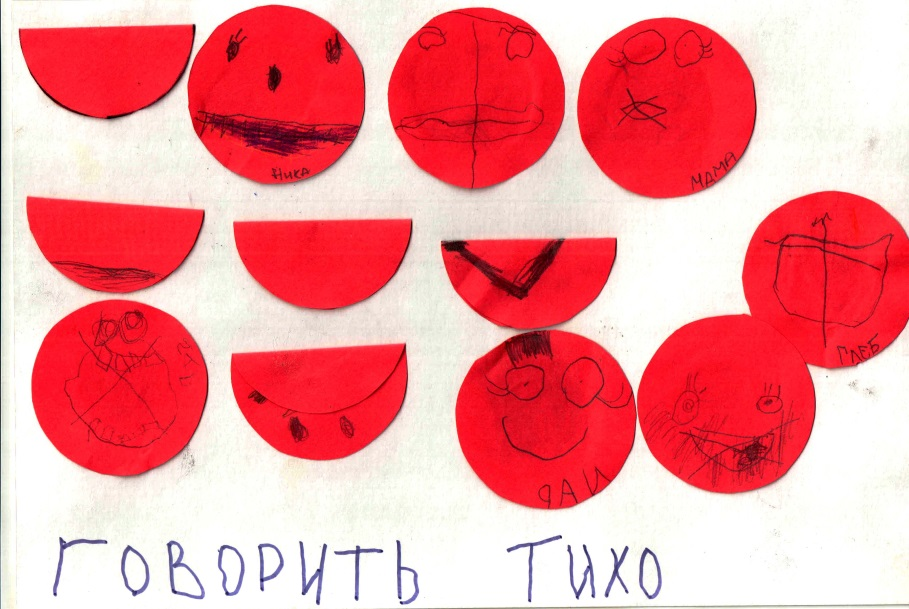 НИКА
МАМА
ГЛЕБ
ГОВОРИТЬ ТИХО